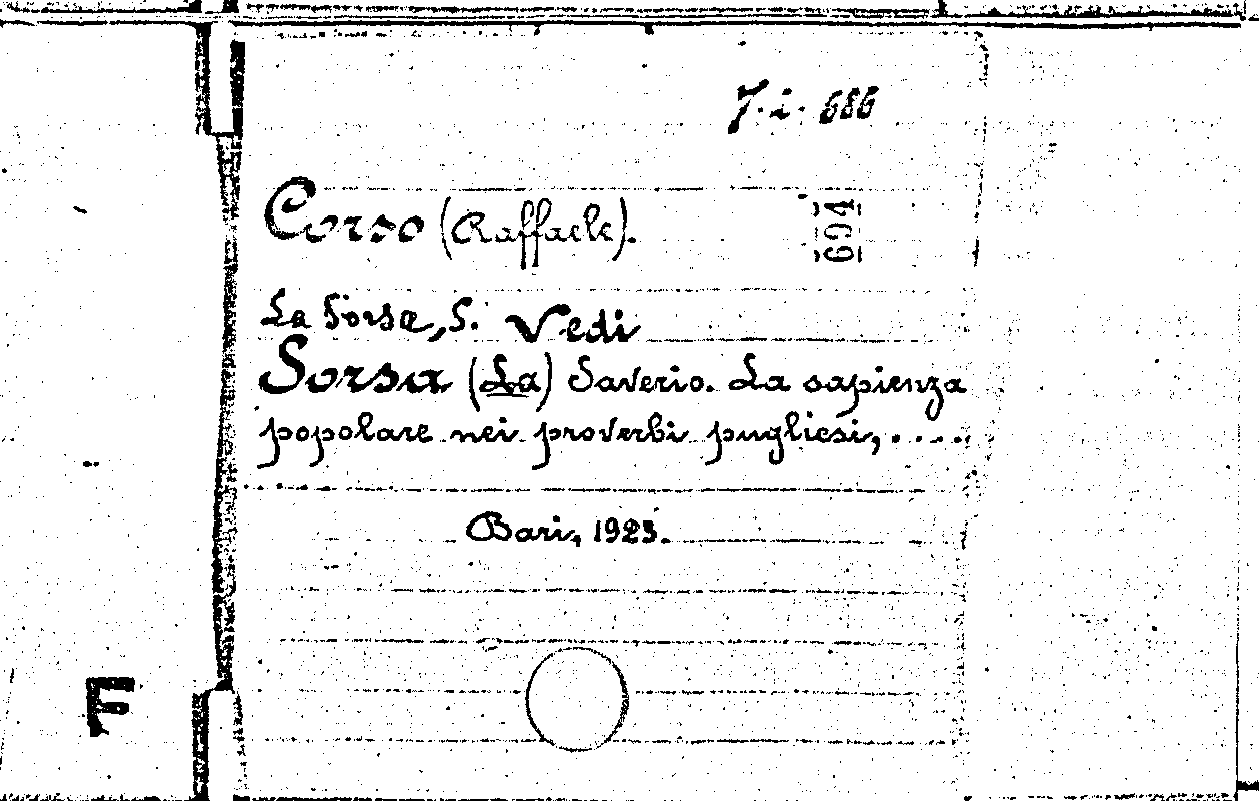 7. i. 686
Corso (Raffaele).
694
La Sorsa, S. Vedi
Sorsa (La) Saverio. La sapienza
popolare nei proverbi pugliesi, .....
Bari, 1923.
F